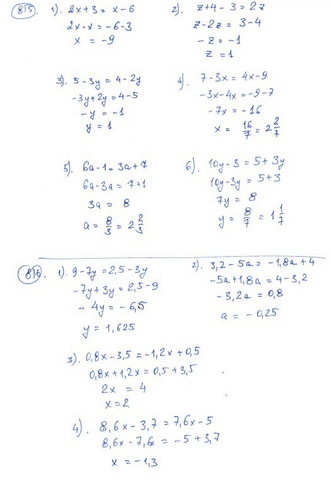 815 1). 2x+3 = x-6
2x-x = -6-3
x = -9
2). z+4-3 = 2z
z-2z = 3-4
-z = -1
z = 1
3). 5-3y = 4-2y
-3y+2y = 4-5
-y = -1
y = 1
4). 7-3x = 4x-9
-3x-4x = -9-7
-7x = -16
x = 16/7 = 2 2/7
5). 6a-1 = 3a+7
6a-3a = 7+1
3a = 8
a = 8/3 = 2 2/3
6). 10y-3 = 5+3y
10y-3y = 5+3
7y = 8
y = 8/7 = 1 1/7
816 1). 9-7y = 2,5-3y
-7y+3y = 2,5-9
-4y = -6,5
y = 1,625
2). 3,2-5a = -1,8a+4
-5a+1,8a = 4-3,2
-3,2a = 0,8
a = -0,25
3). 0,8x-3,5 = -1,2x+0,5
0,8x+1,2x = 0,5+3,5
2x = 4
x = 2
4). 8,6x-3,7 = 7,6x-5
8,6x-7,6x = -5+3,7
x = -1,3